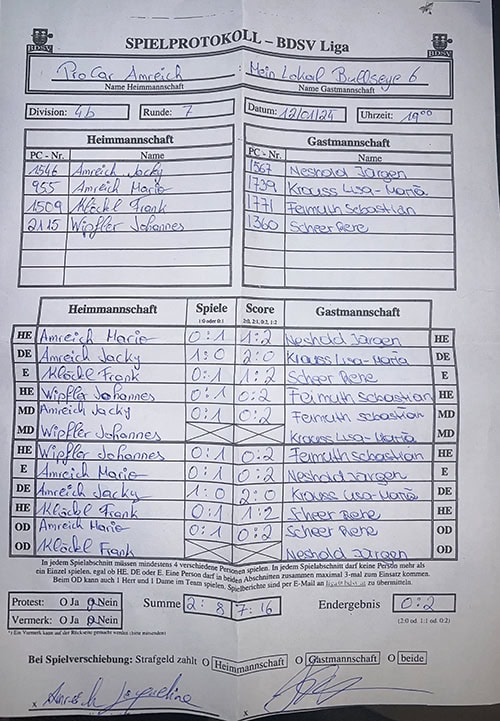 BDSV
SPIELPROTOKOLL – BDSV Liga
BDSV
ProCar Amreich : Mein Lokal Bullseye 6
Name Heimmannschaft Name Gastmannschaft
Division: 4b Runde: 7 Datum: 12/01/24 Uhrzeit: 19⁰⁰
Heimmannschaft Gastmannschaft
PC - Nr. Name PC - Nr. Name
1546 Amreich Jacky 1567 Neshold Jürgen
955 Amreich Mario 1739 Krauss Lisa-Maria
1509 Klöckl Frank 1771 Feimuth Sebastian
2115 Wipfler Johannes 1360 Scheer Rene
Heimmannschaft Spiele Score Gastmannschaft
1:0 oder 0:1 2:0, 2:1, 0:2, 1:2
HE Amreich Mario 0:1 1:2 Neshold Jürgen HE
DE Amreich Jacky 1:0 2:0 Krauss Lisa-Maria DE
E Klöckl Frank 0:1 1:2 Scheer Rene E
HE Wipfler Johannes 0:1 0:2 Feimuth Sebastian HE
MD Amreich Jacky 0:1 0:2 Feimuth Sebastian MD
MD Wipfler Johannes Krauss Lisa-Maria MD
HE Wipfler Johannes 0:1 0:2 Feimuth Sebastian HE
E Amreich Mario 0:1 0:2 Neshold Jürgen E
DE Amreich Jacky 1:0 2:0 Krauss Lisa-Maria DE
HE Klöckl Frank 0:1 1:2 Scheer Rene HE
OD Amreich Mario 0:1 0:2 Scheer Rene OD
OD Klöckl Frank Neshold Jürgen OD
In jedem Spielabschnitt müssen mindestens 4 verschiedene Personen spielen. In jedem Spielabschnitt darf keine Person mehr als
ein Einzel spielen, egal ob HE, DE oder E. Eine Person darf in beiden Abschnitten zusammen maximal 3-mal zum Einsatz kommen.
Beim OD kann auch 1 Herr und 1 Dame im Team spielen. Spielberichte sind per E-Mail an liga@bdsv.at zu übermitteln.
Protest: O Ja O Nein Summe 2:8 7:16 Endergebnis 0:2
Vermerk: O Ja O Nein (2:0 od. 1:1 od. 0:2)
*) Ein Vermerk kann auf der Rückseite gemacht werden (bitte mitsenden)
Bei Spielverschiebung: Strafgeld zahlt O Heimmannschaft O Gastmannschaft O beide
x Amreich Jacqueline x